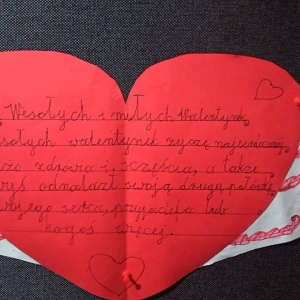 Wesołych i miłych Walentynek
esołych walentynek życzę najserdeczniej
użo zdrowia i szczęścia, a także
byś odnalazł swoją drugą połówkę
wojego serca, przyjaciela lub
kogoś więcej.